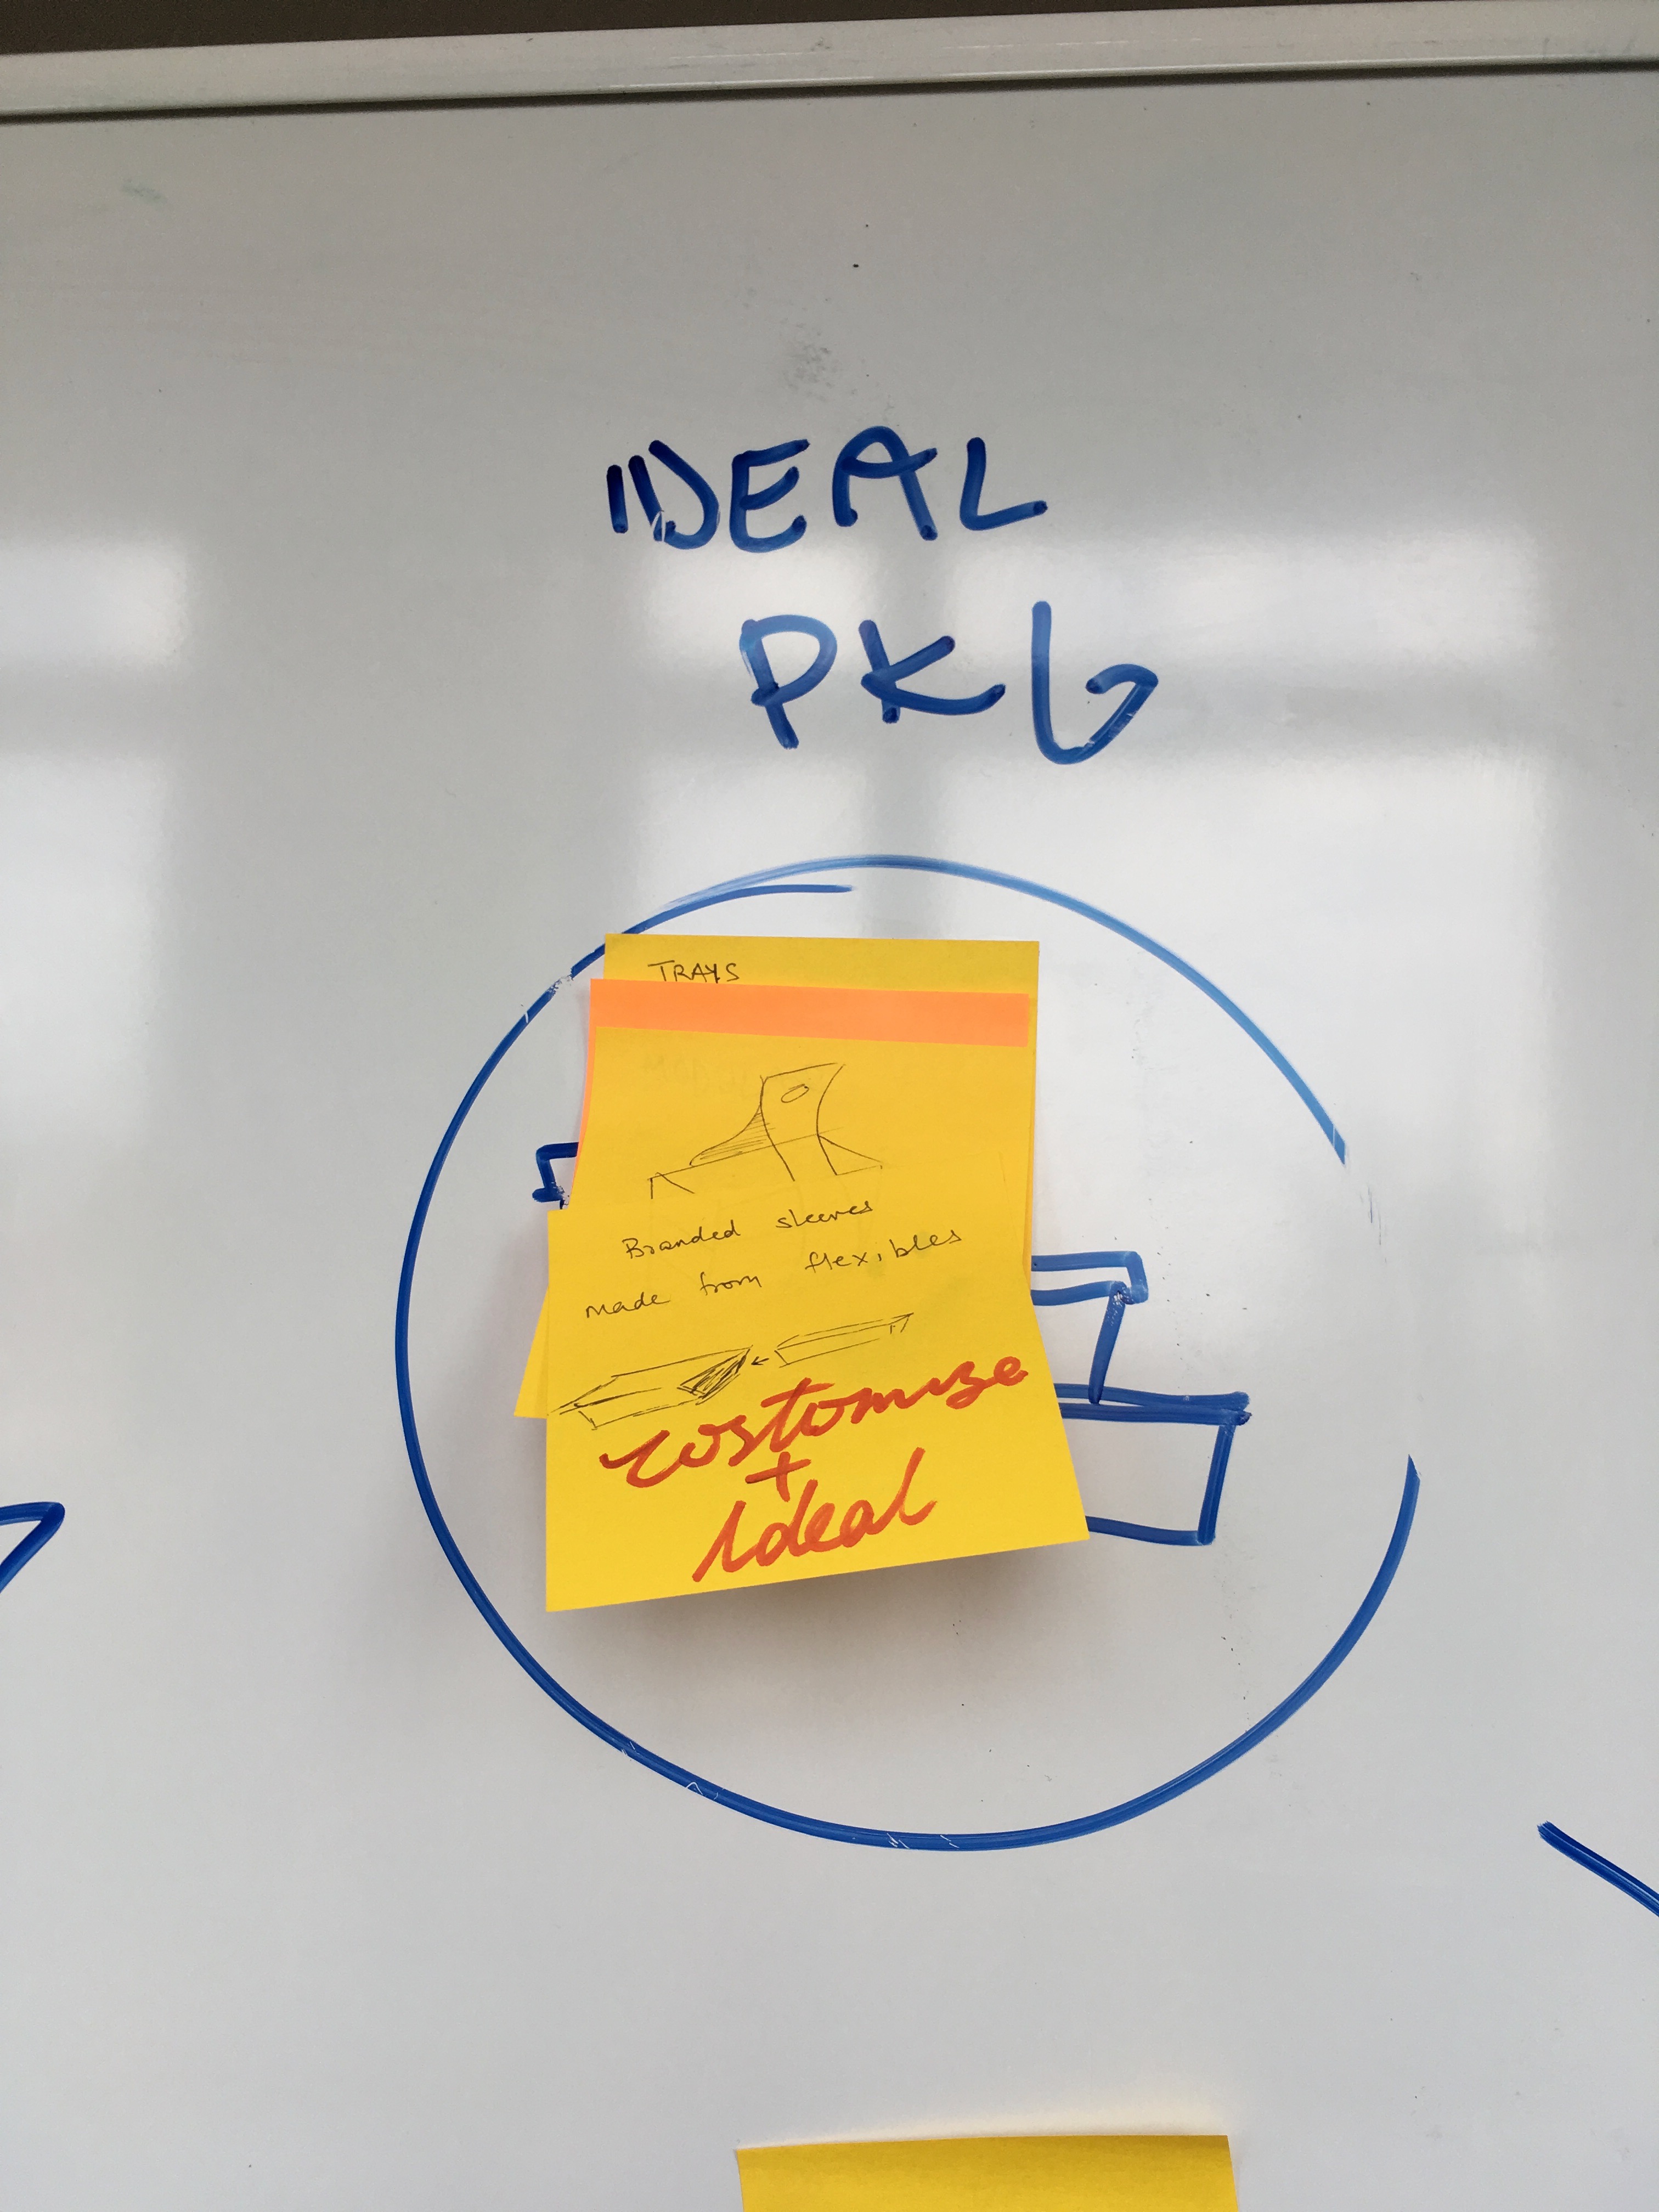 IDEAL
PKG
TRAYS
Branded sleeves
made from flexibles
customize
+
ideal